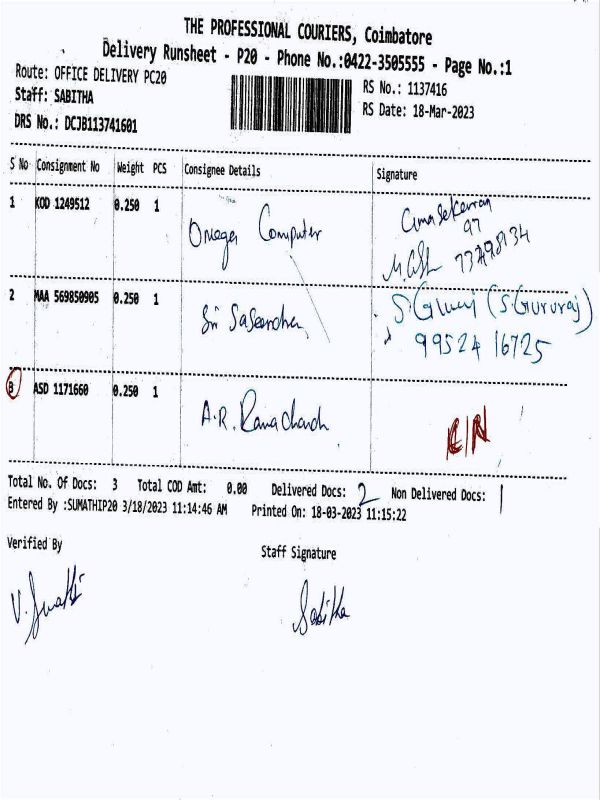 THE PROFESSIONAL COURIERS, Coimbatore
Delivery Runsheet - P20 - Phone No.:0422-3505555 - Page No.:1
Route: OFFICE DELIVERY PC20
RS No.: 1137416
Staff: SABITHA
RS Date: 18-Mar-2023
DRS No.: DCJB113741601
S No Consignment No Weight PCS Consignee Details Signature
1 KOD 1249512 0.250 1 Omega Computer
2 MAA 569850905 0.250 1 Sri S. (S.Gururaj)
99524 16725
3 ASD 1171660 0.250 1 A.R. Ramachandh
Total No. Of Docs: 3 Total COD Amt: 0.00 Delivered Docs: 2 Non Delivered Docs: 1
Entered By :SUMATHIP20 3/18/2023 11:14:46 AM Printed On: 18-03-2023 11:15:22
Verified By Staff Signature
Sabitha